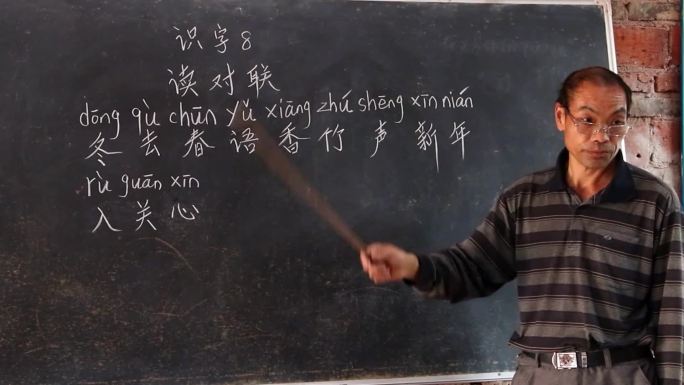 识字8
读对联
dōng qù chūn yǔ xiāng zhú shēng xīn nián
冬去春语香竹声新年
rù guān xīn
入关心